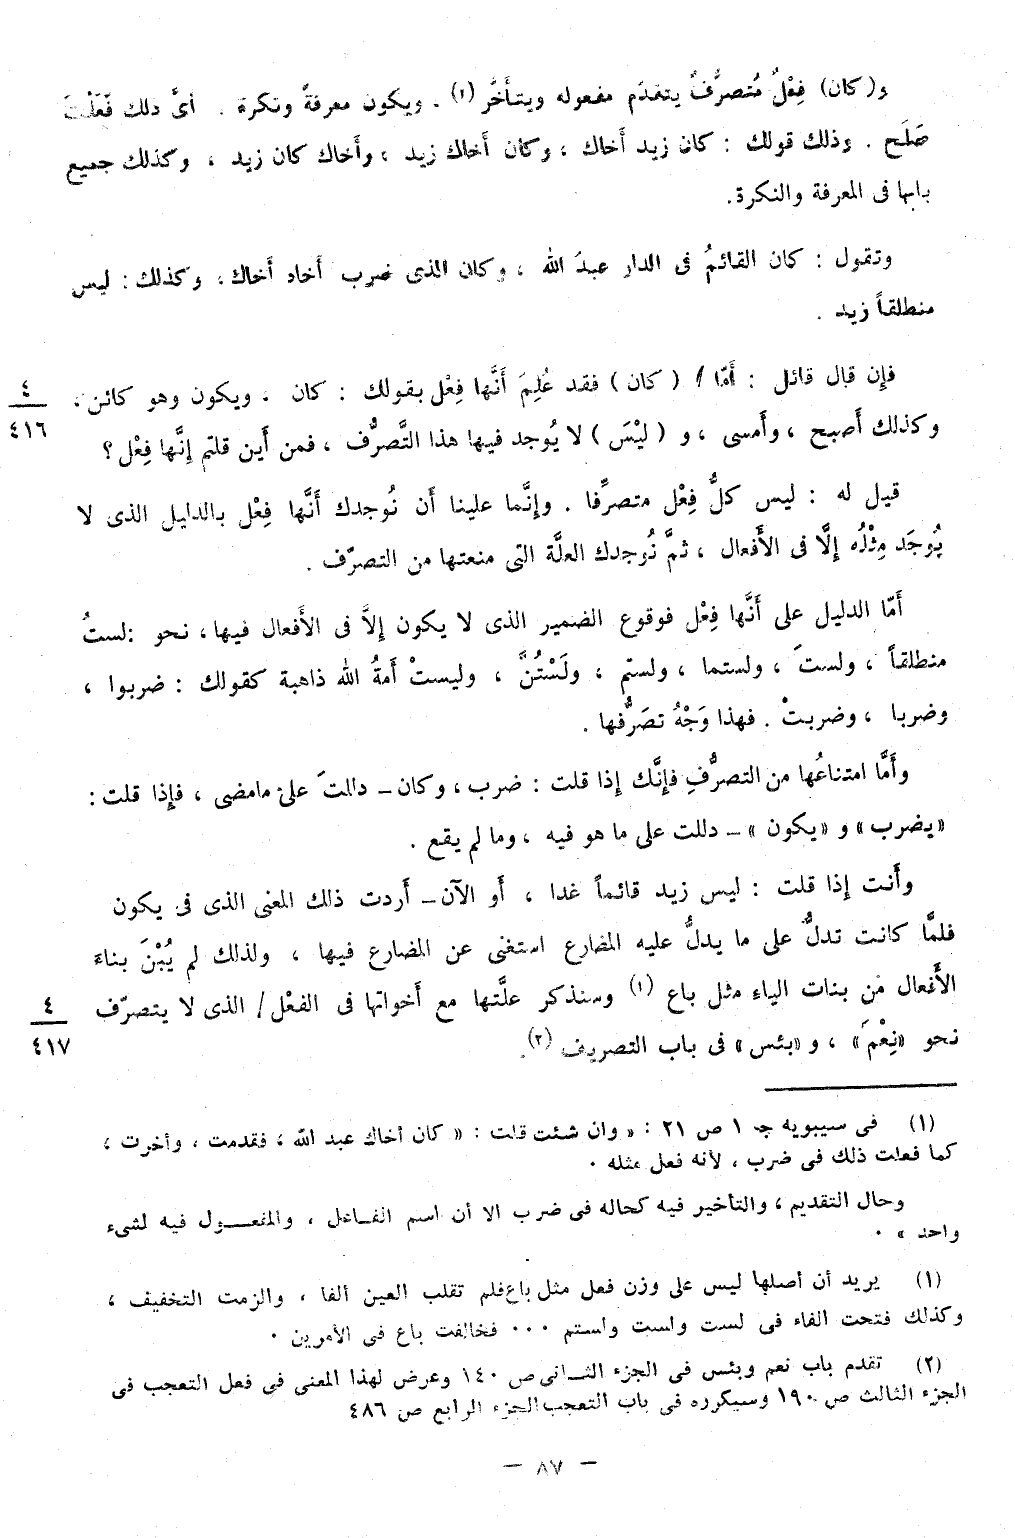 و(كان) فِعْلٌ مُتصرِّفٌ يتقدّم مفعوله ويتأَخَّر (١) . ويكون معرفةً ونكرة . أىَّ ذلك فَعَلْتَ
صَلَح . وذلك قولك : كان زيد أَخاك ، وكان أَخاك زيد ، وأَخاك كان زيد ، وكذلك جميع
بابها فى المعرفة والنكرة.
وتقول : كان القائمُ فى الدار عبدَ الله ، وكان الذى ضرب أَخاه أَخاك، وكذلك : ليس
منطلقاً زيد .
فإِن قال قائل : أَمّا / (كان) فقد عُلِمَ أَنَّها فِعْل بقولك : كان ، ويكون وهو كائن ،
٤
٤١٦
وكذلك أَصبح ، وأَمسى ، و (ليْسَ) لا يُوجد فيها هذا التَّصرُّف ، فمن أَين قلتم إِنَّها فِعْل ؟
قيل له : ليس كلُّ فِعْل متصرِّفا . وإِنَّما علينا أَن نُوجدك أَنَّها فِعْل بالدليل الذى لا
يُوجَد مِثْلُه إِلَّا فى الأَفعال ، ثمَّ نُوجدك العلَّة التى منعتها من التصرّف .
أَمّا الدليل على أَنَّها فِعْل فوقوع الضمير الذى لا يكون إِلاَّ فى الأَفعال فيها، نحو :لستُ
منطلقاً ، ولستَ ، ولستما ، ولستم ، ولَسْتُنَّ ، وليستْ أَمةُ الله ذاهبة كقولك : ضربوا ،
وضربا ، وضربتْ . فهذا وَجْهُ تصَرُّفها .
وأَمَّا امتناعُها من التصرُّفِ فإِنَّك إِذا قلت : ضرب ، وكان – دللتَ على مامضى ، فإِذا قلت :
«يضرب» و «يكون» – دللت على ما هو فيه ، وما لم يقع .
وأَنت إِذا قلت : ليس زيد قائماً غدا ، أَو الآن – أَردت ذلك المعنى الذى فى يكون
فلمَّا كانت تدلُّ على ما يدلُّ عليه المضارع استغنى عن المضارع فيها ، ولذلك لم يُبْنَ بناءَ
الأَفعال مَن بنات الياءِ مثل باع (١) وسنذكر علَّتها مع أَخواتها فى الفعْل / الذى لا يتصرّف
٤
٤١٧
نحو «نِعْمَ» ، و«بئس» فى باب التصريف (٢).
(١) فى سيبويه ج ١ ص ٢١ : «وان شئت قلت : « كان أخاك عبد الله ، فقدمت ، وأخرت ،
كما فعلت ذلك فى ضرب ، لأنه فعل مثله .
وحال التقديم ، والتأخير فيه كحاله فى ضرب الا أن اسم الفـاعل ، والمفعـــول فيه لشىء
واحد » .
(١) يريد أن أصلها ليس على وزن فعل مثل باع فلم تقلب العين ألفا ، والزمت التخفيف ،
وكذلك فتحت الفاء فى لست ولست ولستم ... فخالفت باع فى الأمرين .
(٢) تقدم باب نعم وبئس فى الجزء الثـانى ص ١٤٠ وعرض لهذا المعنى فى فعل التعجب فى
الجزء الثالث ص ١٩٠ وسيكرره فى باب التعجب الجزء الرابع ص ٤٨٦
– ٨٧ –